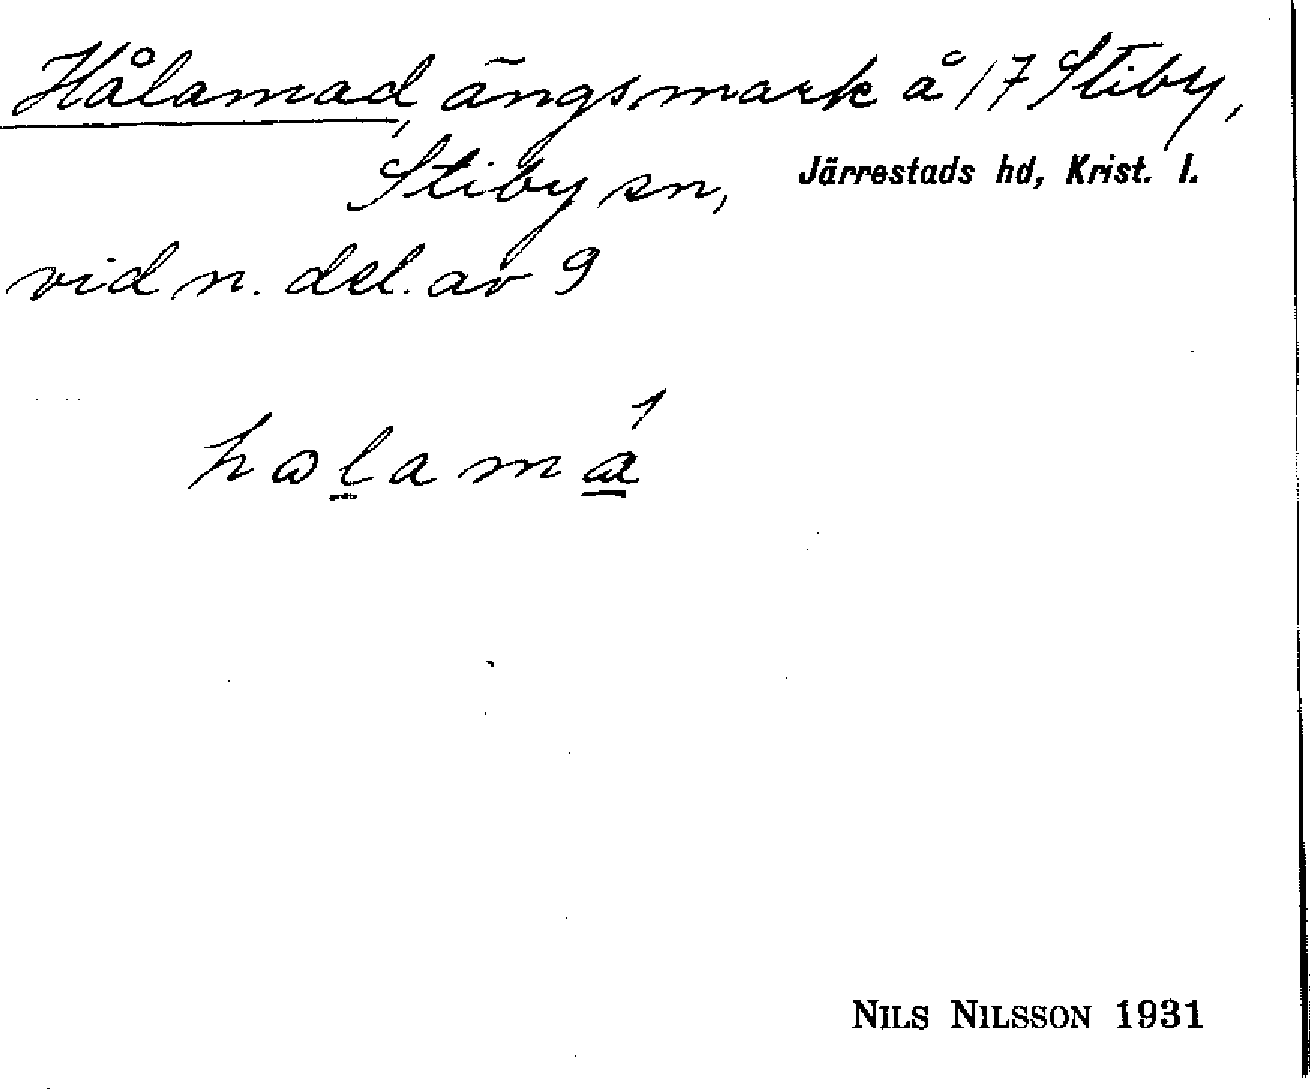 Hålamad, ängsmark å 17 Stiby,
Stiby sn, Järrestads hd, Krist. l.
vid n. del. av 9
NILS NILSSON 1931